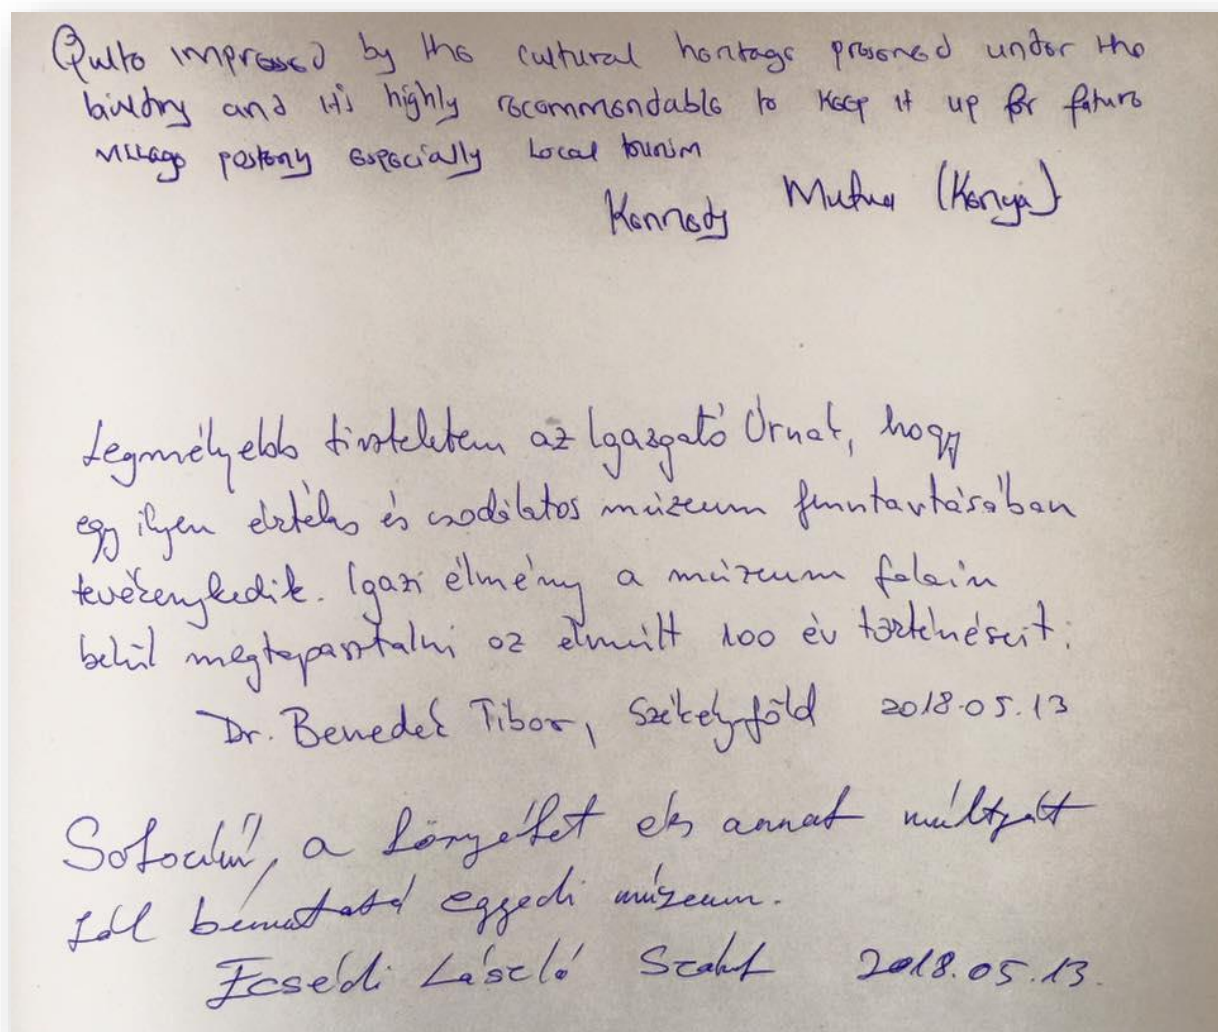 Quite impressed by the cultural heritage preserved under the
building and it's highly recommendable to keep it up for future
village posterity especially local tourism
Kennedy Mutua (Kenya)
Legmélyebb tiszteletem az Igazgató Úrnak, hogy
egy ilyen értékes és csodálatos múzeum fenntartásában
tevékenykedik. Igazi élmény a múzeum falain
belül megtapasztalni az elmúlt 100 év történéseit.
Dr. Benedek Tibor, Székelyföld 2018.05.13
Sokoldalú, a környéket és annak múltját
jól bemutató egyedi múzeum.
Ecsédi László 2018.05.13.